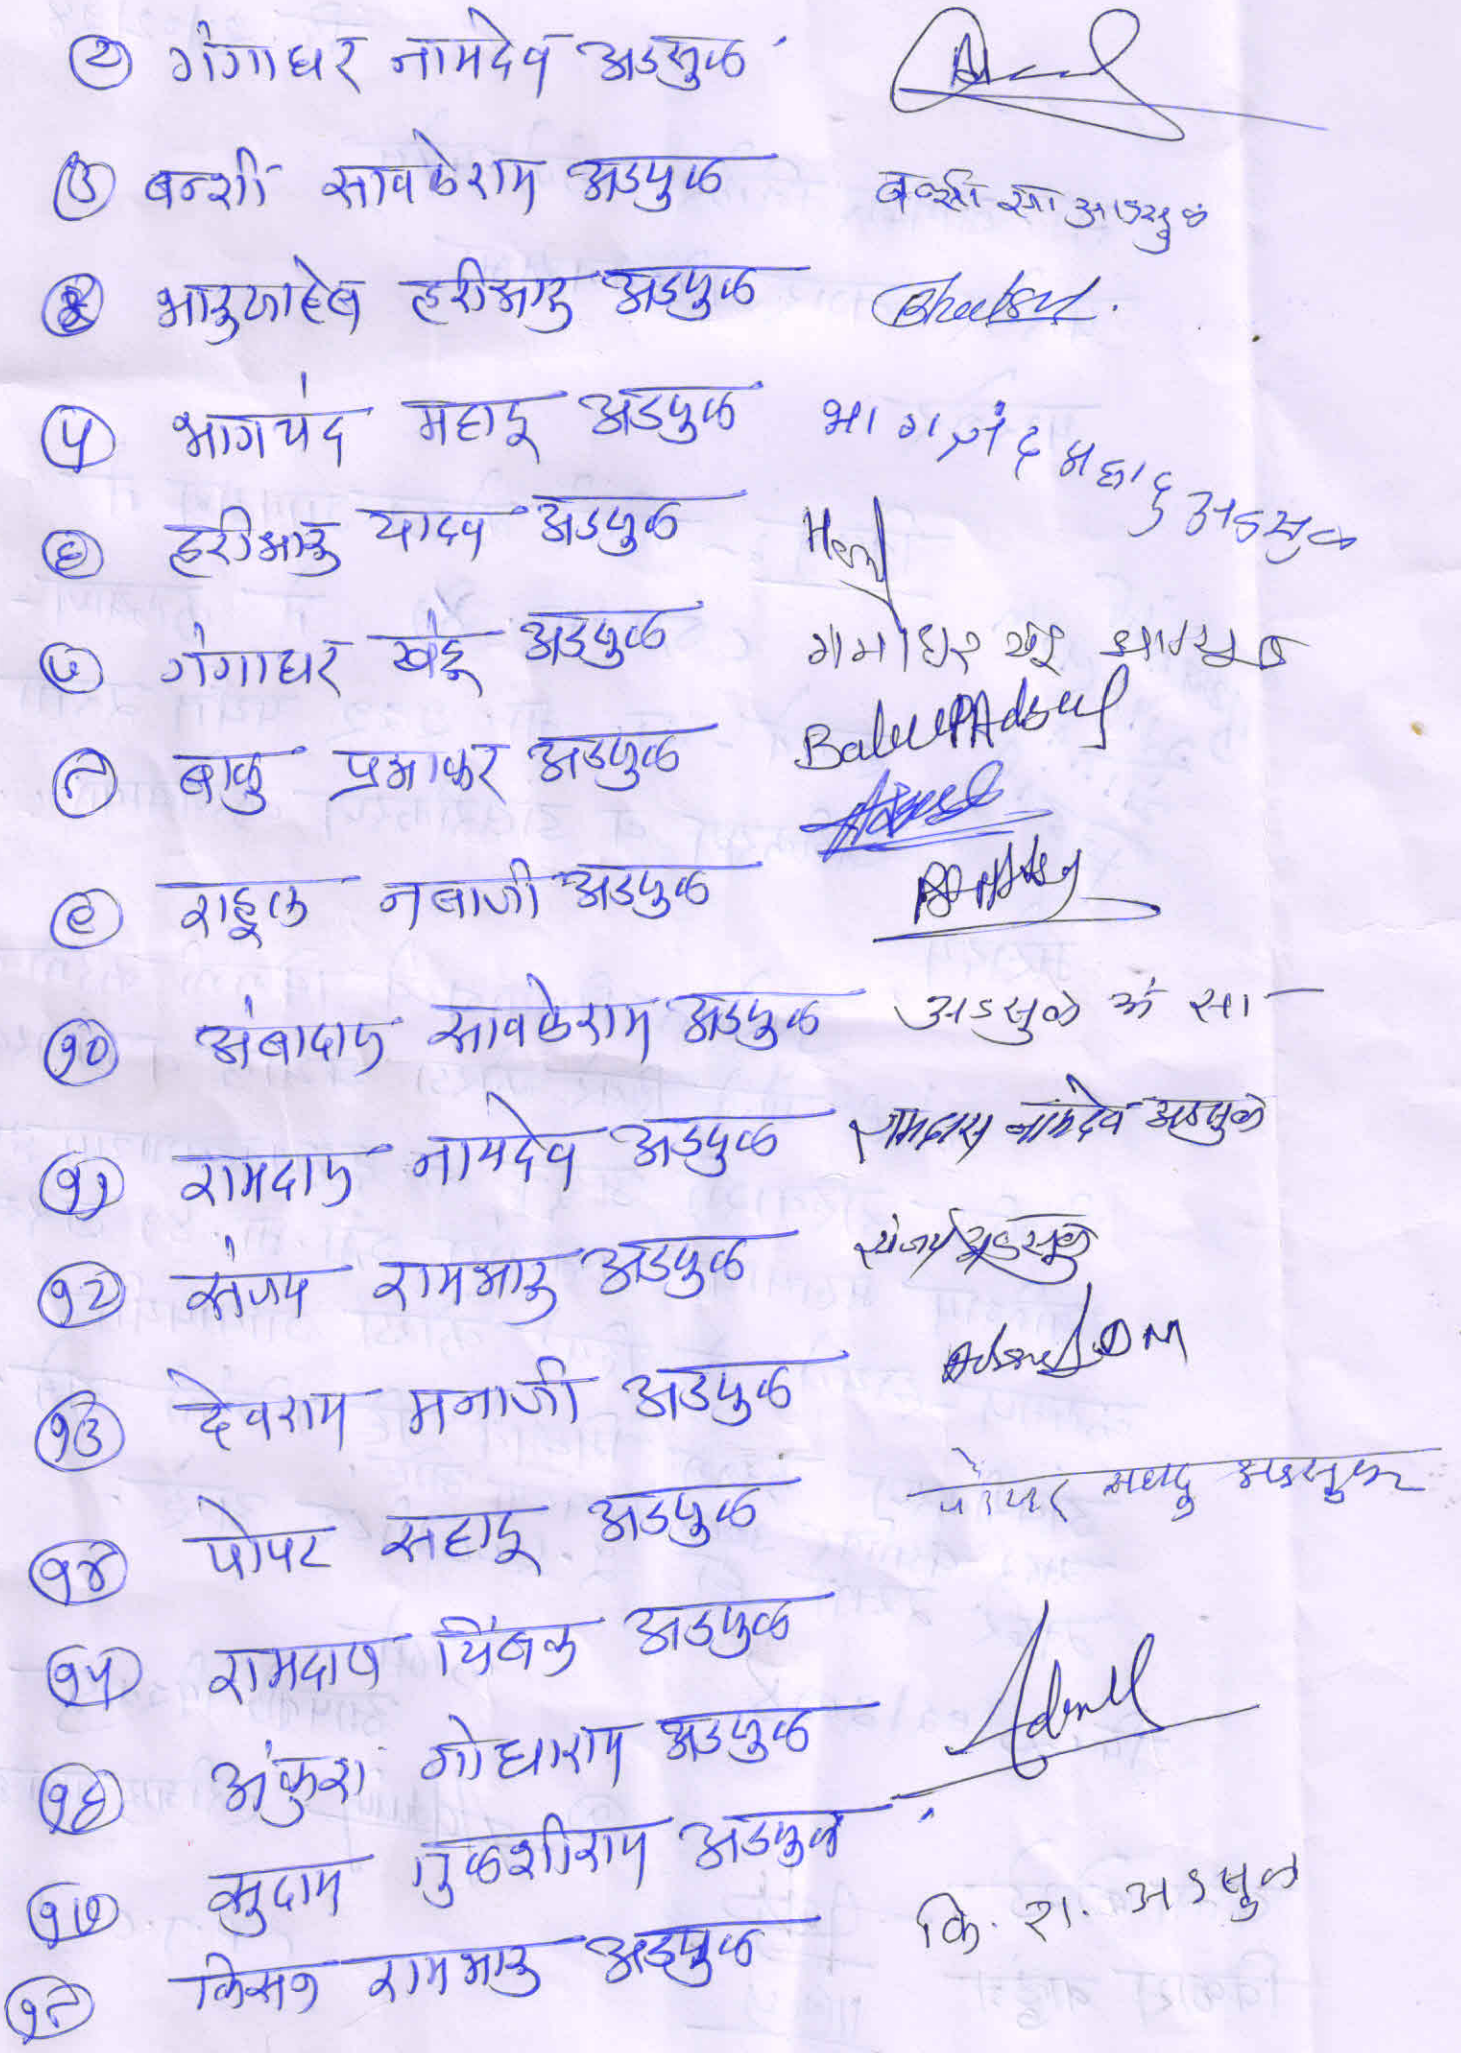 २ गंगाधर नामदेव अडसुळ
३ बन्शी सावळेराम अडसुळ बन्शी सा अडसुळ
४ भाऊसाहेब हरीभाऊ अडसुळ
५ भागचंद महादू अडसुळ भागचंद महादु अडसुळ
६ हरीभाऊ यादव अडसुळ
७ गंगाधर खंडू अडसुळ गंगाधर खंडू अडसुळ
८ बाळु प्रभाकर अडसुळ Balu P Adsul
९ राहूल नबाजी अडसुळ
१० अंबादास सावळेराम अडसुळ अडसुळ अं सा
११ रामदास नामदेव अडसुळ रामदास नामदेव अडसुळ
१२ संजय रामभाऊ अडसुळ संजय अडसुळ
१३ देवराम मनाजी अडसुळ Adsul D M
१४ पोपट सहादू अडसुळ पोपट सहादु अडसुळ
१५ रामदास त्रिंबक अडसुळ
१६ अंकुश गोधाराम अडसुळ Adsul
१७ सुदाम तुळशीराम अडसुळ
१८ किसन रामभाऊ अडसुळ कि. रा. अडसुळ